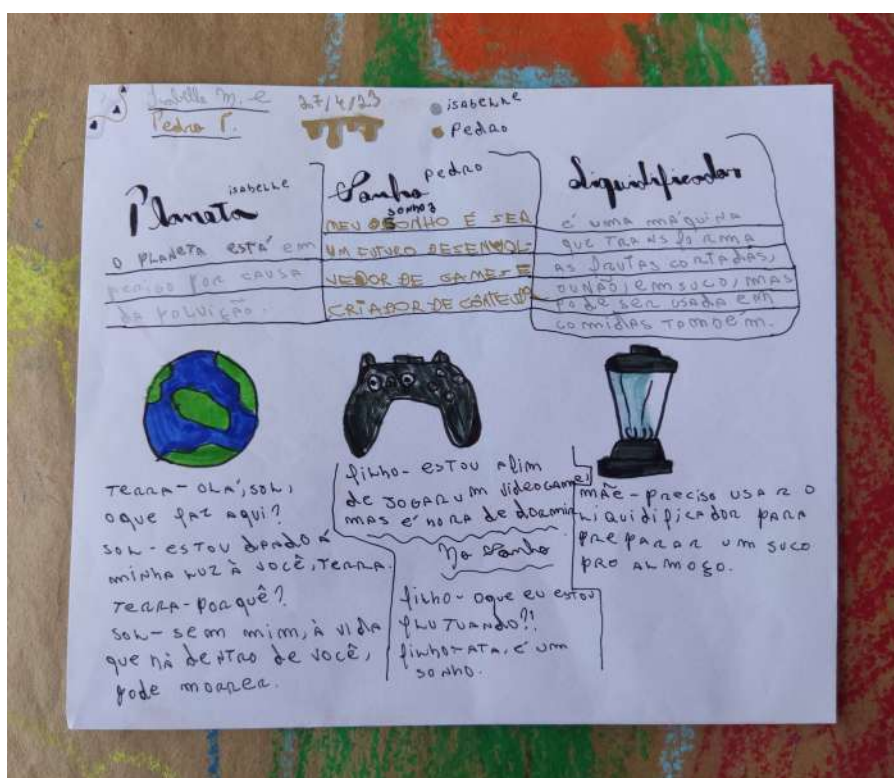 Isabelle M. e
Pedro P.
27/4/23
isabelle
Pedro
isabelle
Planeta
O PLANETA ESTÁ em
perigo por causa
da poluição.
pedro
Sonho
sonhos
MEU SONHO É SER
UM FUTURO DESENVOL-
VEDOR DE GAMES E
CRIADOR DE CONTEUDO
Liquidificador
é uma máquina
que transforma
as frutas cortadas,
ou não, em suco, mas
pode ser usada em
comidas também.
Terra- olá, sol,
oque faz aqui?
Sol- estou dando à
minha luz à você, Terra.
Terra- porquê?
Sol- sem mim, à vida
que há dentro de você,
pode morrer.
filho- estou afim
de jogar um videogame,
mas é hora de dormir
No sonho
filho- oque eu estou
flutuando?!
filho- ata, é um
sonho.
mãe- preciso usar o
liquidificador para
preparar um suco
pro almoço.